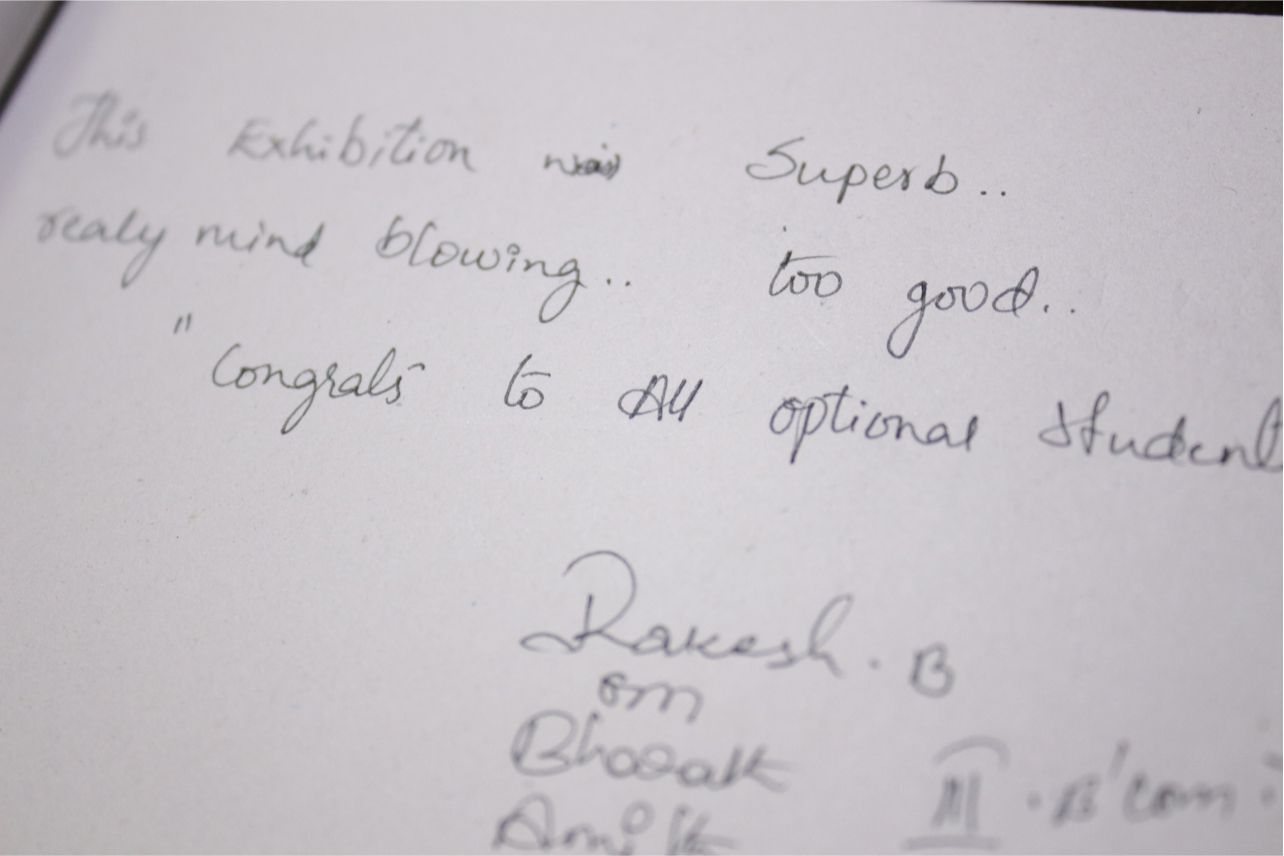 This Exhibition was Superb..
realy mind blowing.. too good..
"Congrats" to All optional Student
Rakesh. B
om
Bharath
Amith
III. B'com